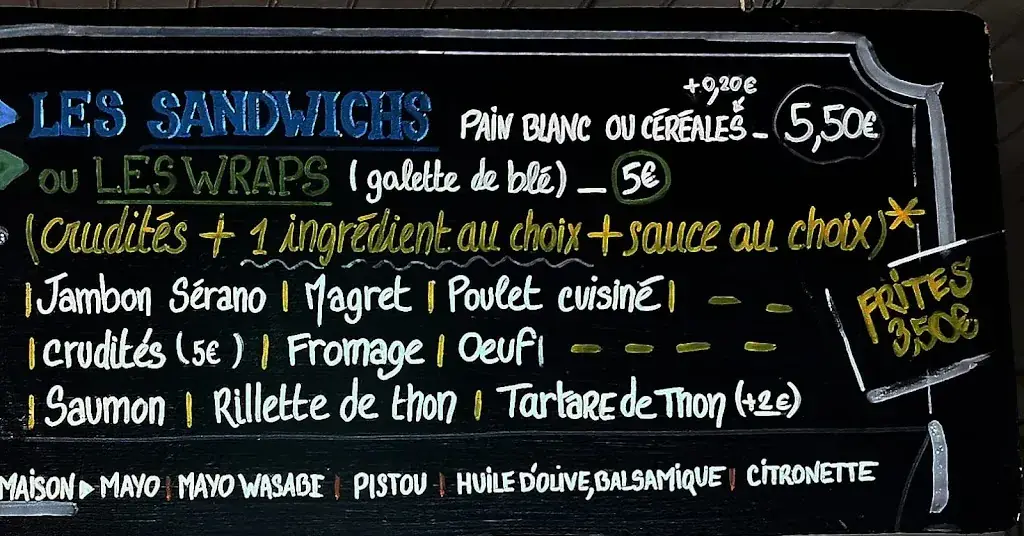 +0,20€
LES SANDWICHS PAIN BLANC OU CÉRÉALES - 5,50€
OU LES WRAPS (galette de blé) - 5€
(Crudités + 1 ingrédient au choix + sauce au choix)*
Jambon Sérano | Magret | Poulet cuisiné |
FRITES
3,50€
| crudités (5€) | Fromage | Oeuf |
| Saumon | Rillette de thon | Tartare de Thon (+2€)
MAISON ▸ MAYO | MAYO WASABE | PISTOU | HUILE D'OLIVE, BALSAMIQUE | CITRONETTE